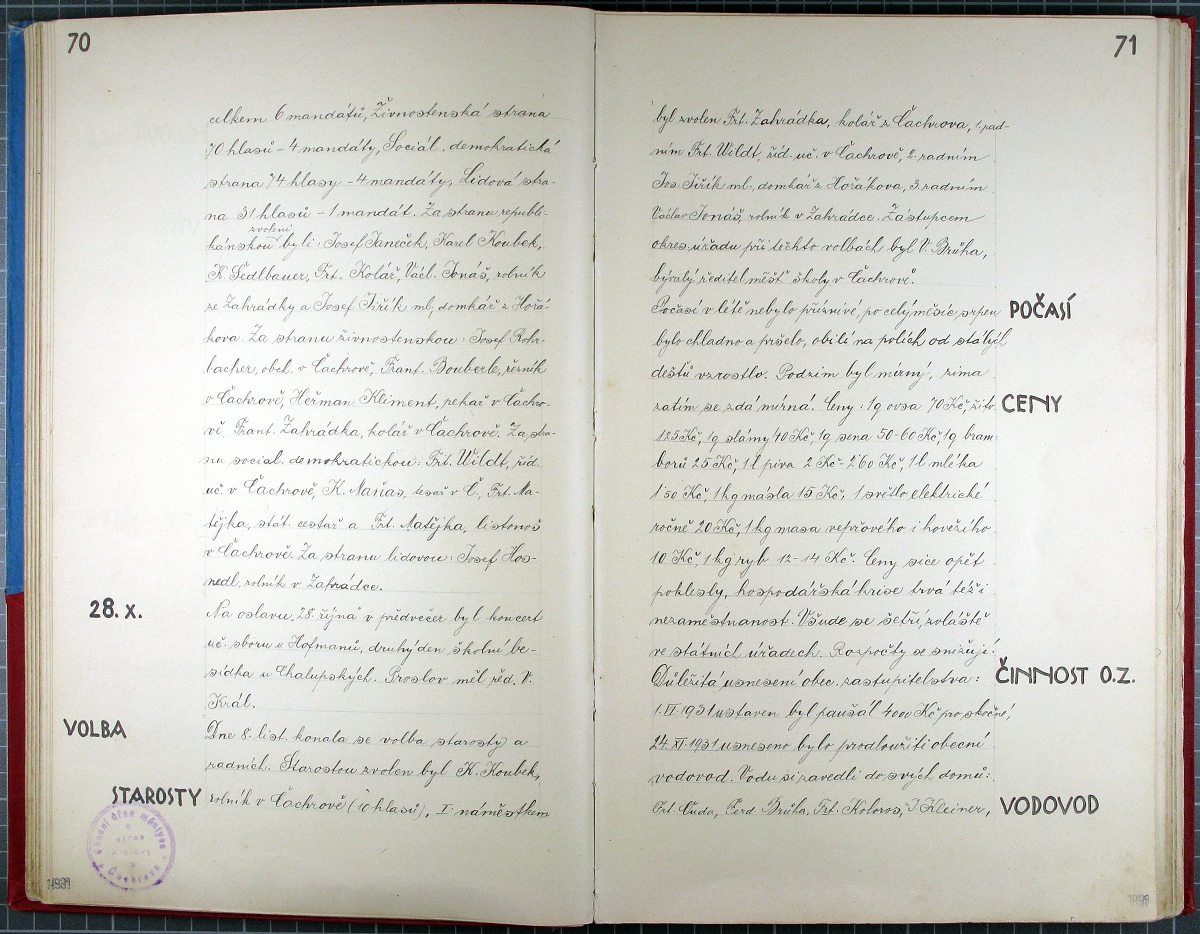 70
celkem 6 mandátů, Živnostenská strana
70 hlasů - 4 mandáty, Sociál. demokratická
strana 74 hlasy - 4 mandáty, Lidová stra-
na 31 hlasů - 1 mandát. Za stranu republi-
zvoleni
kánskou byli: Josef Janeček, Karel Koubek,
K. Sedlbauer, Frt. Kolář, Václ. Jonáš, rolník
ze Zahrádky a Josef Jiřík ml., domkář z Hořá-
kova. Za stranu živnostenskou: Josef Rohr-
bacher, obch. v Čachrově, Frant. Bouberle, řezník
v Čachrově, Heřman Kliment, pekař v Čachro-
vě, Frant. Zahrádka, kolář v Čachrově. Za stra-
nu social. demokratickou: Frt. Wildt, říd.
uč. v Čachrově, K. Naňas, tesař v Č., Frt. Ma-
tějka, stát. cestář a Frt. Matějka, listonoš
v Čachrově. Za stranu lidovou: Josef Hos-
nedl, rolník v Zahrádce.
28. X.
Na oslavu 28. října v předvečer byl koncert
uč. sboru u Hofmanů, druhý den školní be-
sídka u Chalupských. Proslov měl řed. V.
Král.
VOLBA
STAROSTY
Dne 8. list. konala se volba starosty a
radních. Starostou zvolen byl K. Koubek,
rolník v Čachrově (10 hlasů), I. náměstkem
1931
71
byl zvolen Frt. Zahrádka, kolář z Čachrova, 1. rad-
ním Frt. Wildt, říd. uč. v Čachrově, 2. radním
Jos. Jiřík ml., domkář z Hořákova, 3. radním
Václav Jonáš, rolník v Zahrádce. Zástupcem
okres. úřadu při těchto volbách byl V. Brůha,
bývalý ředitel měšť. školy v Čachrově.
POČASÍ
Počasí v létě nebylo příznivé, po celý měsíc srpen
bylo chladno a pršelo, obilí na polích od stálých
dešťů vzrostlo. Podzim byl mírný, zima
zatím se zdá mírná. Ceny: 1 q ovsa 70 Kč, žito
CENY
125 Kč, 1 q slámy 40 Kč, 1 q sena 50-60 Kč, 1 q bram-
borů 25 Kč, 1 l piva 2 Kč - 2.60 Kč, 1 l mléka
1.50 Kč, 1 kg másla 15 Kč, 1 světlo elektrické
ročně 20 Kč, 1 kg masa vepřového i hovězího
10 Kč, 1 kg ryb 12-14 Kč. Ceny sice opět
poklesly, hospodářská krise trvá též i
nezaměstnanost. Všude se šetří, zvláště
ve státních úřadech. Rozpočty se snižují.
ČINNOST O.Z.
Důležitá usnesení obec. zastupitelstva:
1. VI. 1931 ustaven byl paušál 4000 Kč pro skočné,
24. XI. 1931 usneseno bylo prodloužiti obecní
vodovod. Vodu si zavedli do svých domů:
VODOVOD
Frt. Čuda, Ferd. Brůha, Frt. Koloros, J. Kleiner,